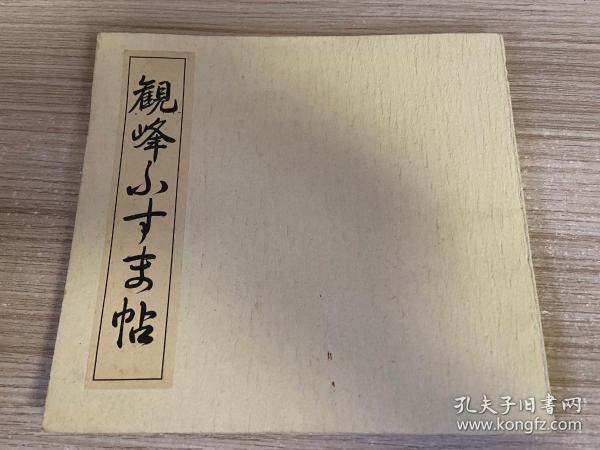 観峰ふすま帖
孔夫子旧書网
www.kongfz.com